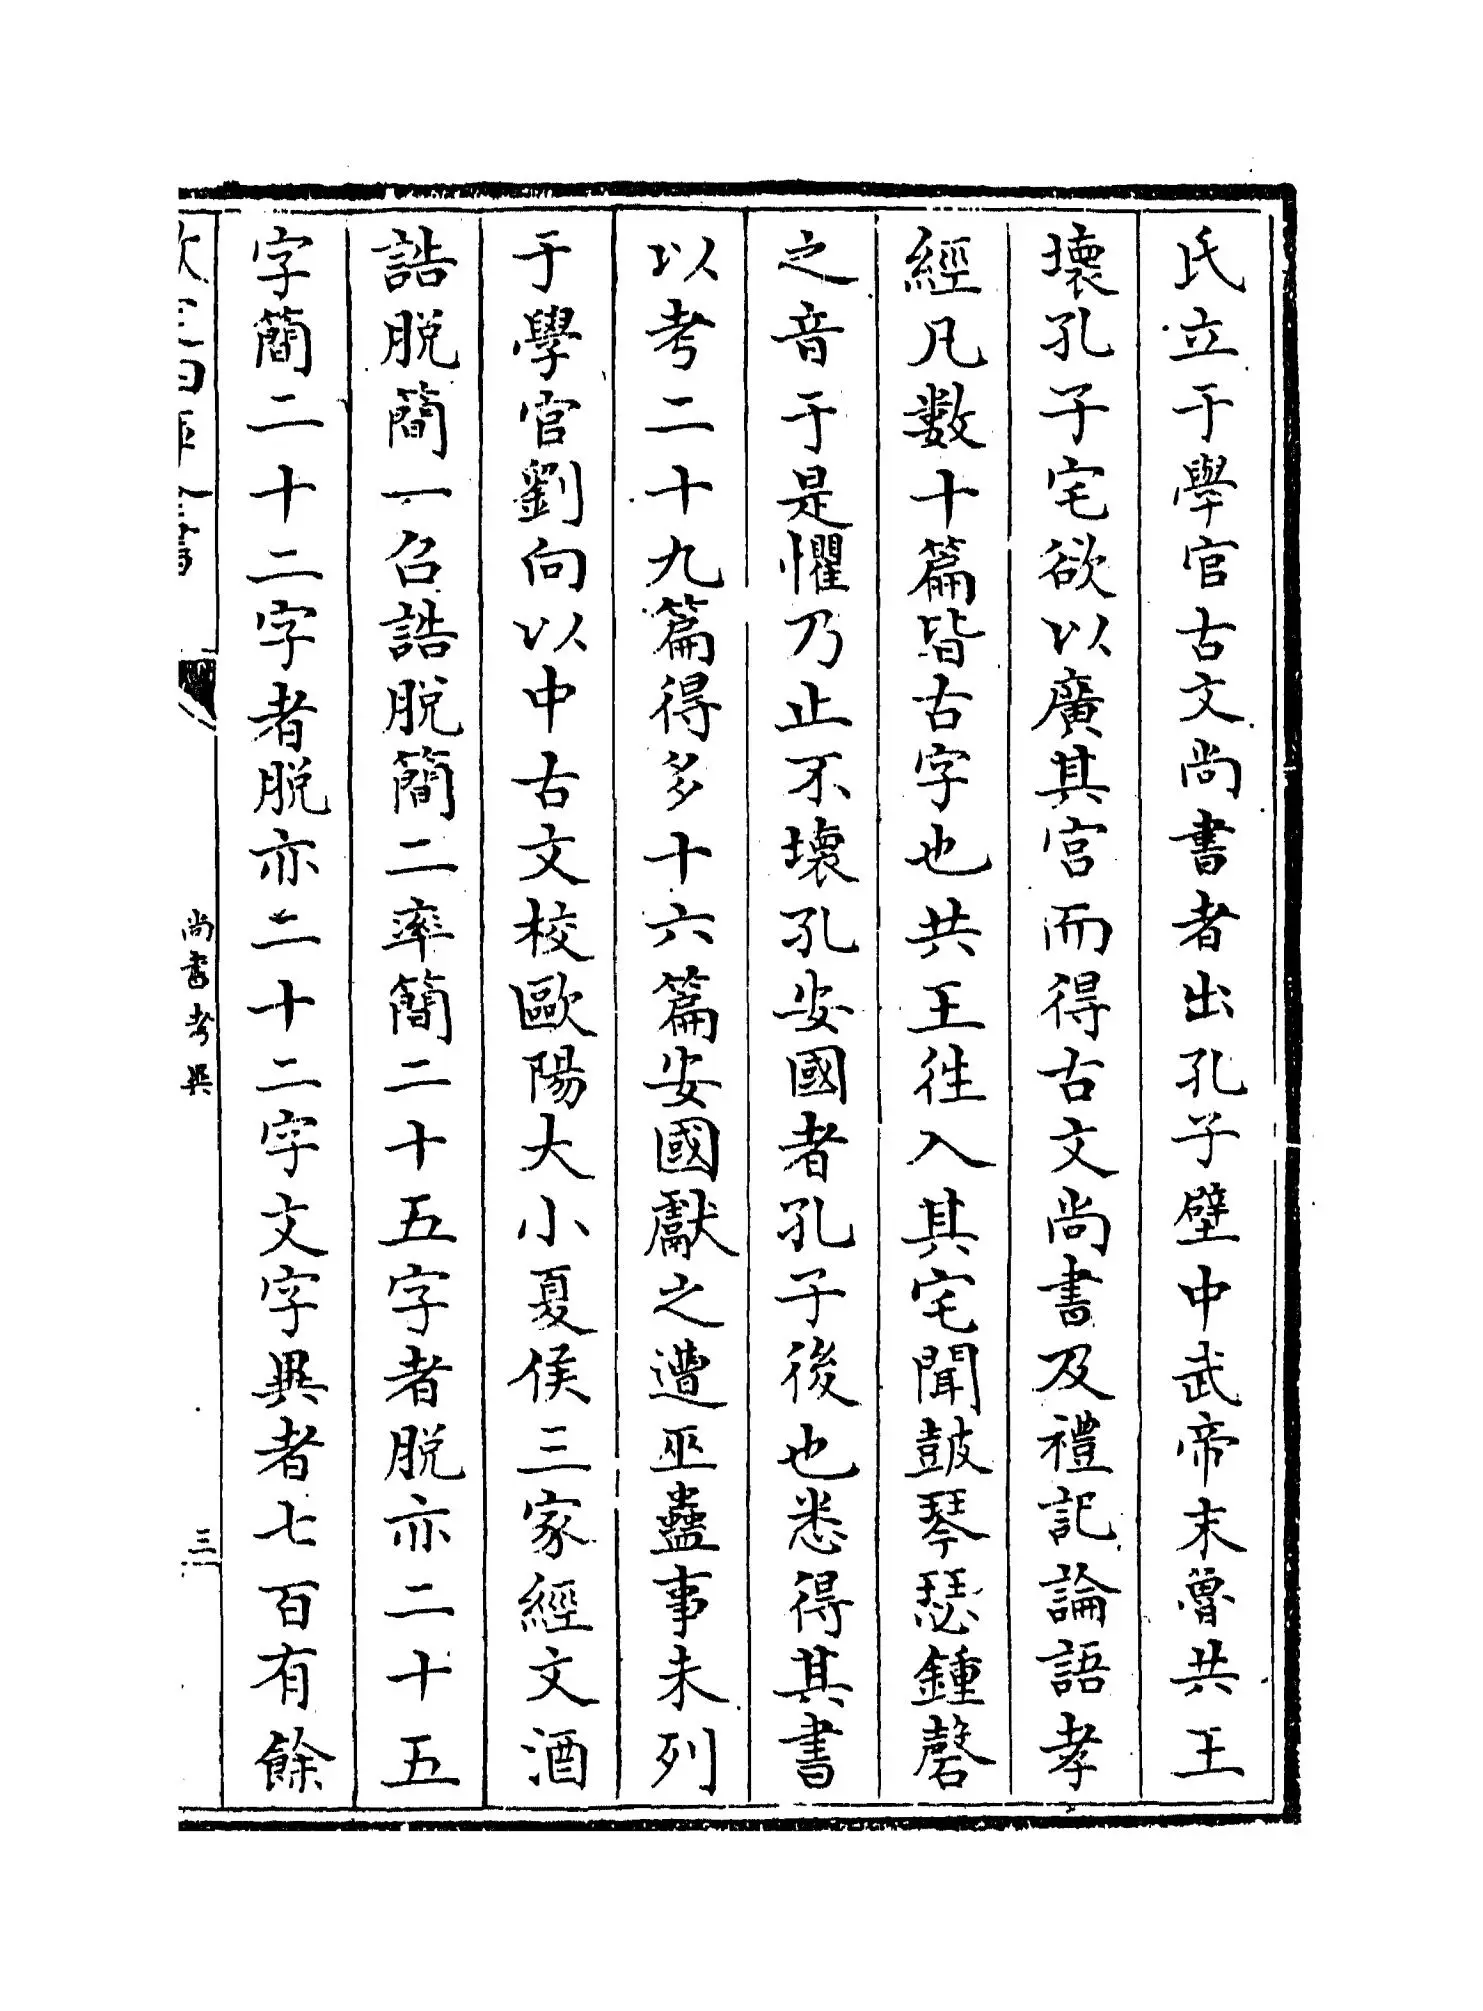 氏立于學官古文尚書者出孔子壁中武帝末魯共王
壞孔子宅欲以廣其宫而得古文尚書及禮記論語孝
經凡數十篇皆古字也共王徃入其宅聞鼓琴瑟鍾磬
之音于是懼乃止不壞孔安國者孔子後也悉得其書
以考二十九篇得多十六篇安國獻之遭巫蠱事未列
于學官劉向以中古文校歐陽大小夏侯三家經文酒
誥脱簡一召誥脱簡二率簡二十五字者脱亦二十五
字簡二十二字者脱亦二十二字文字異者七百有餘
欽定四庫全書
尚書考異
三